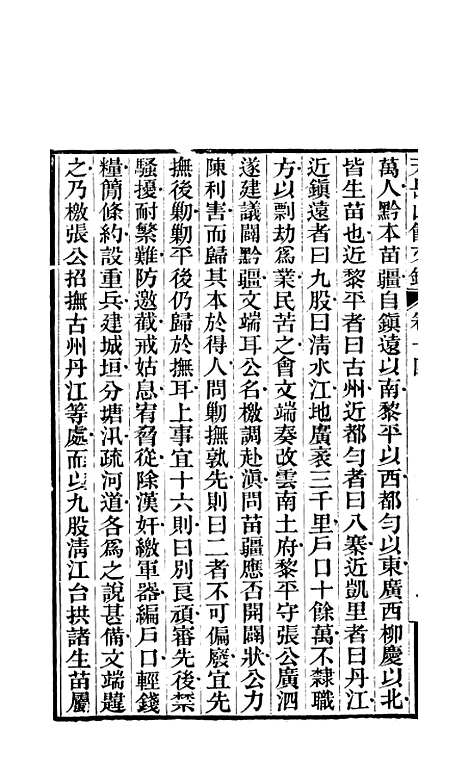 萬人黔本苗疆自鎮遠以南黎平以西都勻以東廣西柳慶以北
皆生苗也近黎平者曰古州近都勻者曰八寨近凱里者曰丹江
近鎮遠者曰九股曰清水江地廣袤三千里戶口十餘萬不隸職
方以剽劫爲業民苦之會文端奏改雲南土府黎平守張公廣泗
遂建議闢黔疆文端耳公名檄調赴滇問苗疆應否開闢狀公力
陳利害而歸其本於得人問勦撫孰先則曰二者不可偏廢宜先
撫後勦勦平後仍歸於撫耳上事宜十六則曰別良頑審先後禁
騷擾耐繁難防邀截戒姑息宥脅從除漢奸繳軍器編戶口輕錢
糧簡條約設重兵建城垣分塘汛疏河道各爲之說甚備文端韙
之乃檄張公招撫古州丹江等處而以九股清江台拱諸生苗屬